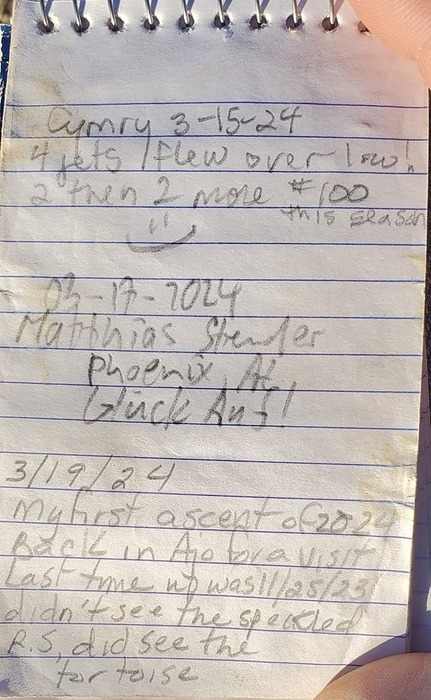 Cymry 3-15-24
4 jets flew over low!
2 then 2 more #100
this season
03-17-2024
Matthias Strender
Phoenix, AZ
Glück Auf!
3/19/24
My first ascent of 2024
Back in Ajo for a visit
Last time up was 11/25/23
didn't see the speckled
R.S, did see the
tortoise